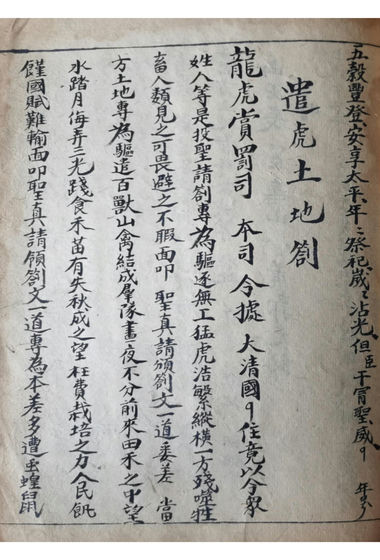 五穀豐登安享太平年〻祭祀歲〻沾光但臣干冒聖威
遣虎土地劄
龍虎賞罰司 本司 今據 大清國 住竟以今眾
姓人等是投聖請劄專為驅逐無工猛虎浩繁縱橫一方殘噬牲
畜人類見之可畏避之不暇面叩 聖真請頒劄文一道委差 當
方土地專為驅遣百獸山禽結成羣隊晝夜不分前來田禾之中望
水踏月侮弄三光踐食禾苗有失秋成之望枉費栽培之力人民飢
饉國賦難輸面叩聖真請頒劄文一道專為本差多遭虫蝗鼠